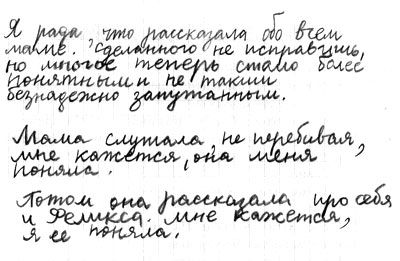 Я рада, что рассказала обо всем
маме. Сделанного не исправишь,
но многое теперь стало более
понятным и не таким
безнадежно запутанным.
Мама слушала, не перебивая,
мне кажется, она меня
поняла.
Потом она рассказала про себя
и Феликса. Мне кажется,
я ее поняла.